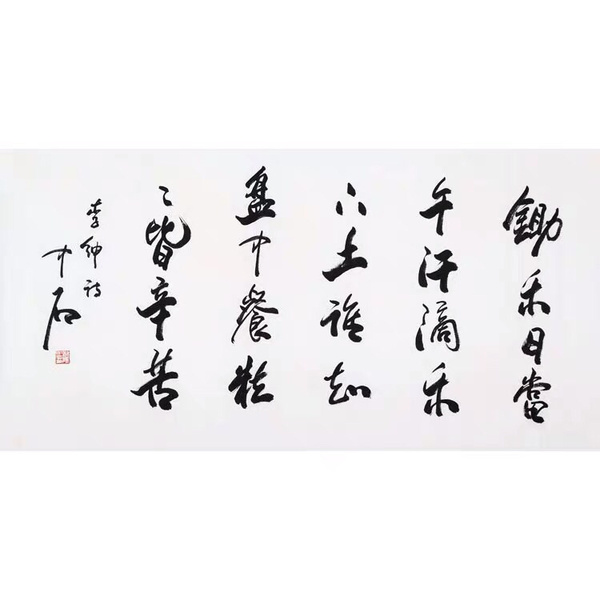 鋤禾日當
午汗滴禾
下土誰知
盤中餐粒
〻皆辛苦
李紳詩
中石